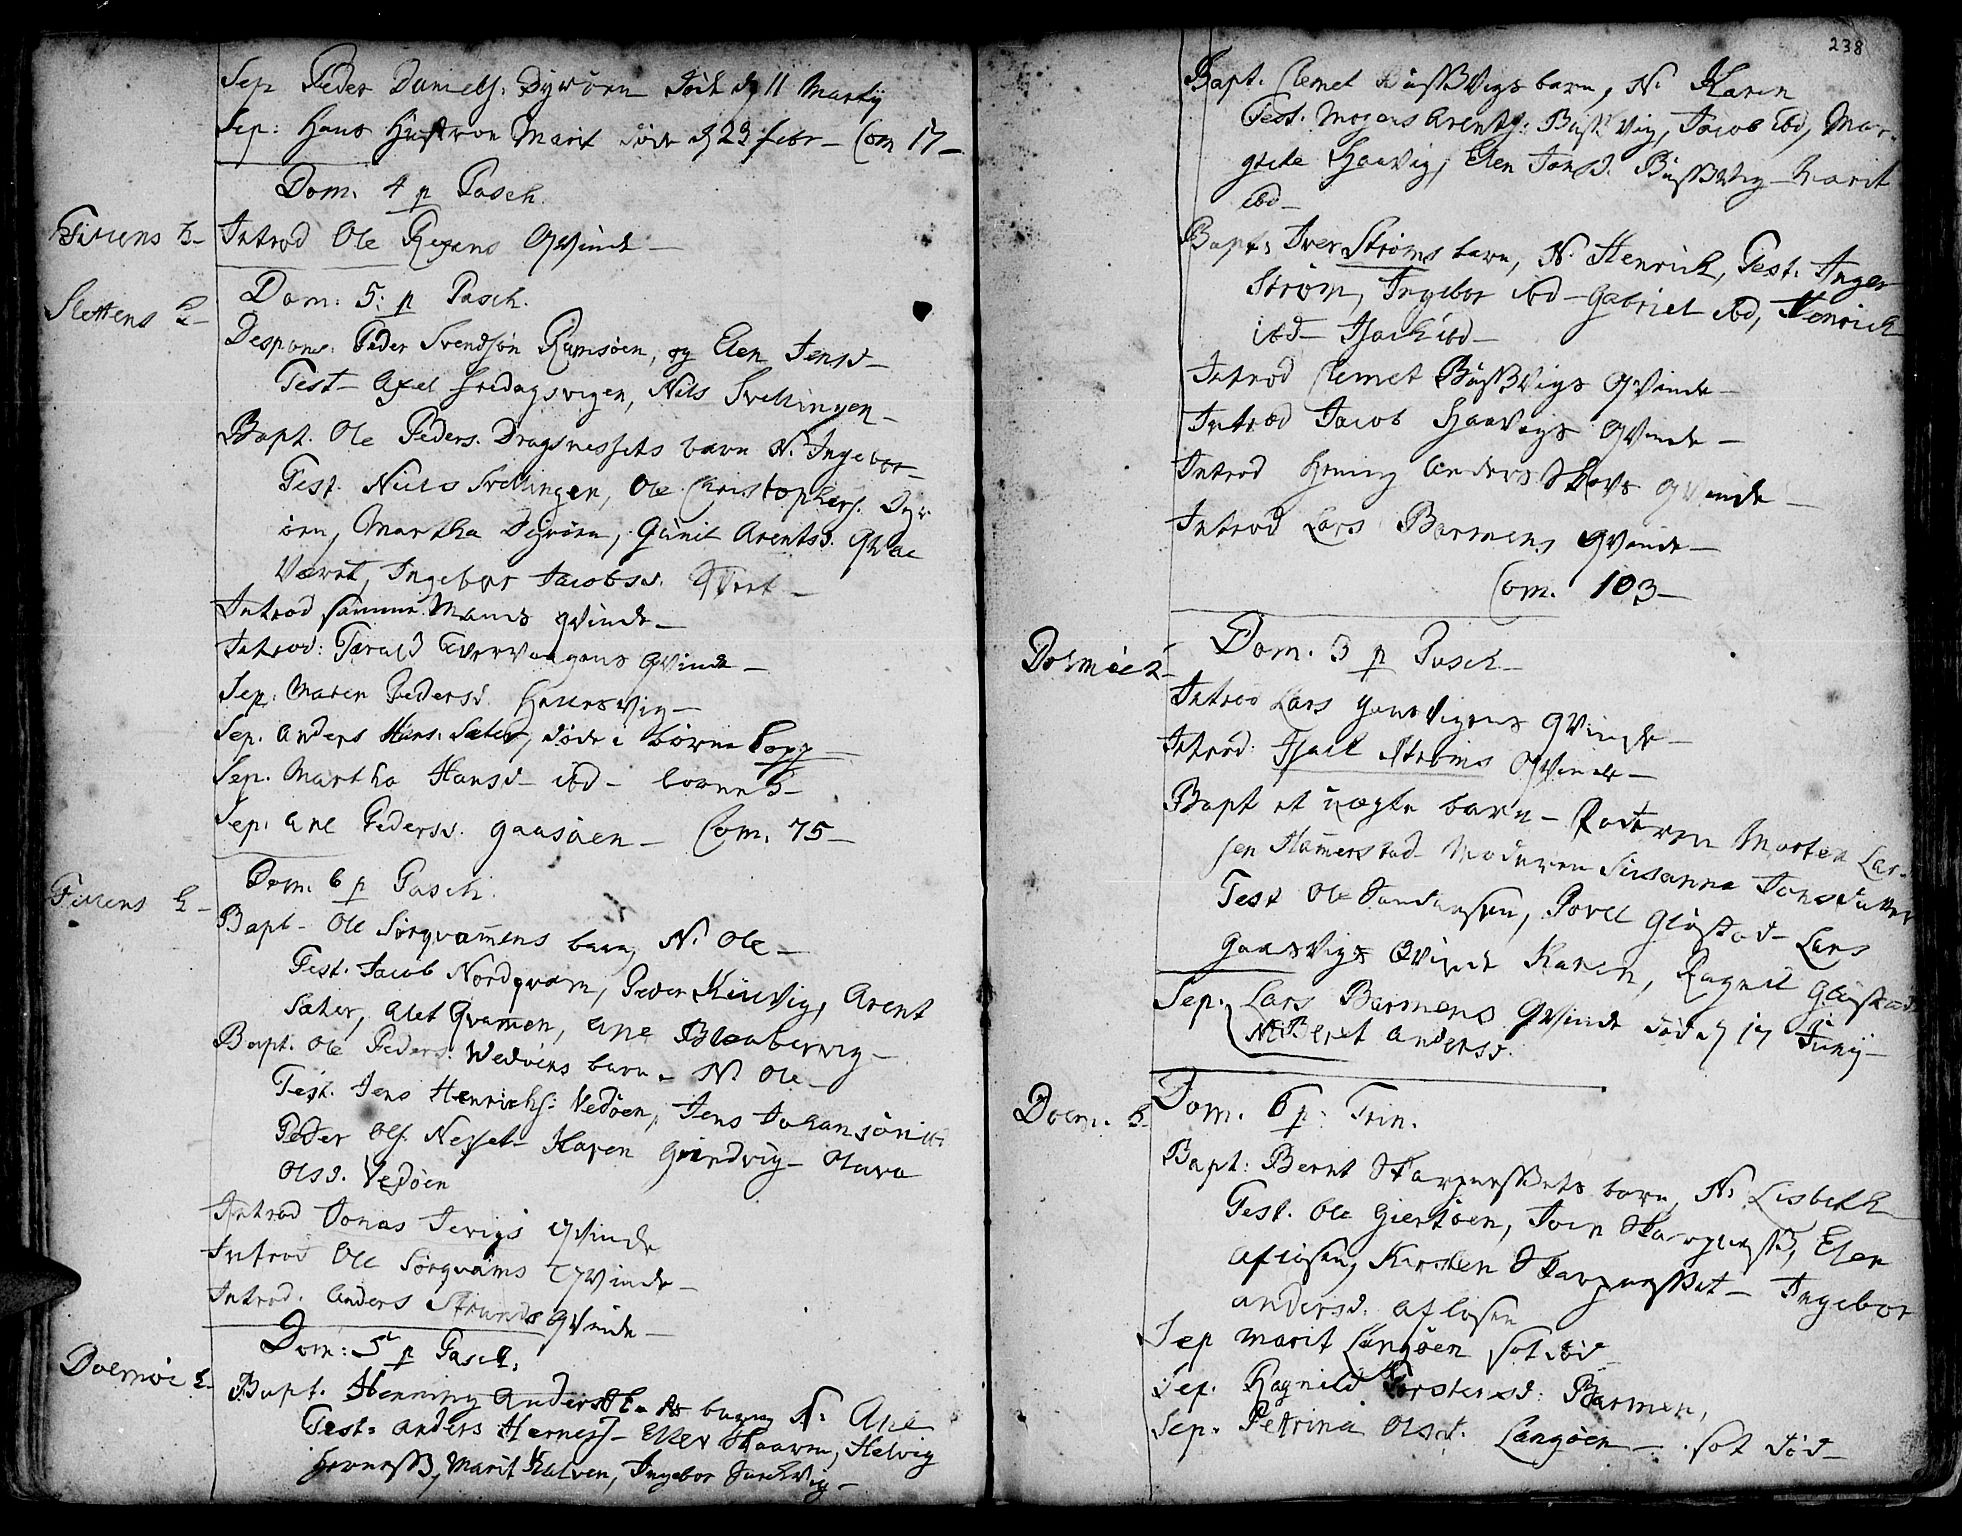 Sep Peder Daniels: Dyrørn Død d 11 Martij
Sep: Hans Hustroe Marit Døde d 23 febr – Com 17 –
Dom. 4 p Pasch.
Fillens k– Introd Ole Rexens Qvinde –
Slettens k– Dom: 5: p Pasch.
Despons: Peder Svendsøn Ramsøen, og Elen Jensd –
Test – Axel fredagsvigen, Nils Svellingen –
Bapt. Ole Peders. Dragsnessets barn N. Ingebor –
Test. Niels Svellingen, Ole Christophers. Dyr-
ørn, Martha Dyrørn, Gunil Arentsd.
Været, Ingebor Jacobsd.
Introd samme Mands qvinde –
Introd: Tarald Qvinde –
Sep. Maren Pedersd.
Sep. Anders Hans. Sæter, døde i børne kopp –
Sep. Martha Hansd – ibd – børne k –
Sep. Ane Pedersd. Gaasøen – Com. 75 –
Fillens k– Dom. 6 p Pasch.
Bapt – Ole Sørqvamens barn, N. Ole –
Test. Jacob Nordqvam, Peder Kiervig, Arent
Sæter, Alet Qvamen, Ane Blaabervig –
Bapt. Ole Peders. Wedøens barn – N. Ole –
Test. Jens Henrichs: Vedøen, Jens Johansøn ibd
Peder Ols. Nesset – Karen Grindvig – Olava
Olsd. Vedøen
Introd Jonas Tevigs qvinde
Introd Ole Sørqvams Qvinde –
Introd. Anders Strands Qvinde –
Dolmøe k– Dom: 5 p Pasch.
Bapt. Henning Anders barn N: Ane
Test: Anders Herness – Elles Helvig
Herness, Marit Kalven, Ingebor
238
Bapt. Clemet Bussvigs barn, N. Karen
Test: Mogens Arents: Bussvig, Jacob ibd, Mar-
grete Haavig, Elen Jonsd. Bussvig – Marit
ibd –
Bapt: Iver Strøms barn, N. Henrich, Test: Inger
Strøm, Ingebor ibd – Gabriel ibd, Henrich
ibd – Isach ibd –
Introd Clemet Bussvigs Qvinde –
Introd Jacob Haavigs Qvinde –
Introd Hening Anders Qvinde –
Introd Lars Barmens Qvinde –
Com. 103 –
Dolmøe k– Dom. 3 p Pasch –
Introd Lars Gaasvigens Qvinde –
Introd: Isach Strøms Qvinde –
Bapt et uægte barn – Faderen Morten Lar-
sen Hamerstad – Moderen Susanna Jonsdatter
Test Ole Povel Gløstad – Lars
Gaasvigs Qvinde Karen, Ragnil Gløstad
Sep. Lars Barmens Qvinde død d 17 Junij –
N: Beret Andersd.
Dolm. k– Dom. 6 p: Trin.
Bapt: Bernt barn, N: Lisbeth
Test. Ole Giertøen, Elen
Kirsten Ingebor
Andersd.
Sep Marit Langøen sot død
Sep. Ragnild Torstensd: Barmen,
Sep. Petrina Olsd. Langøen – sot død –